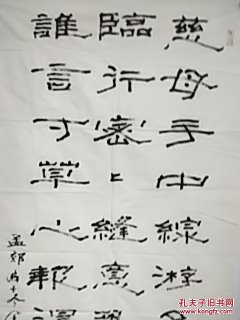 慈母手中線游
臨行密〻縫意
誰言寸草心報
孟郊
孔夫子旧书网